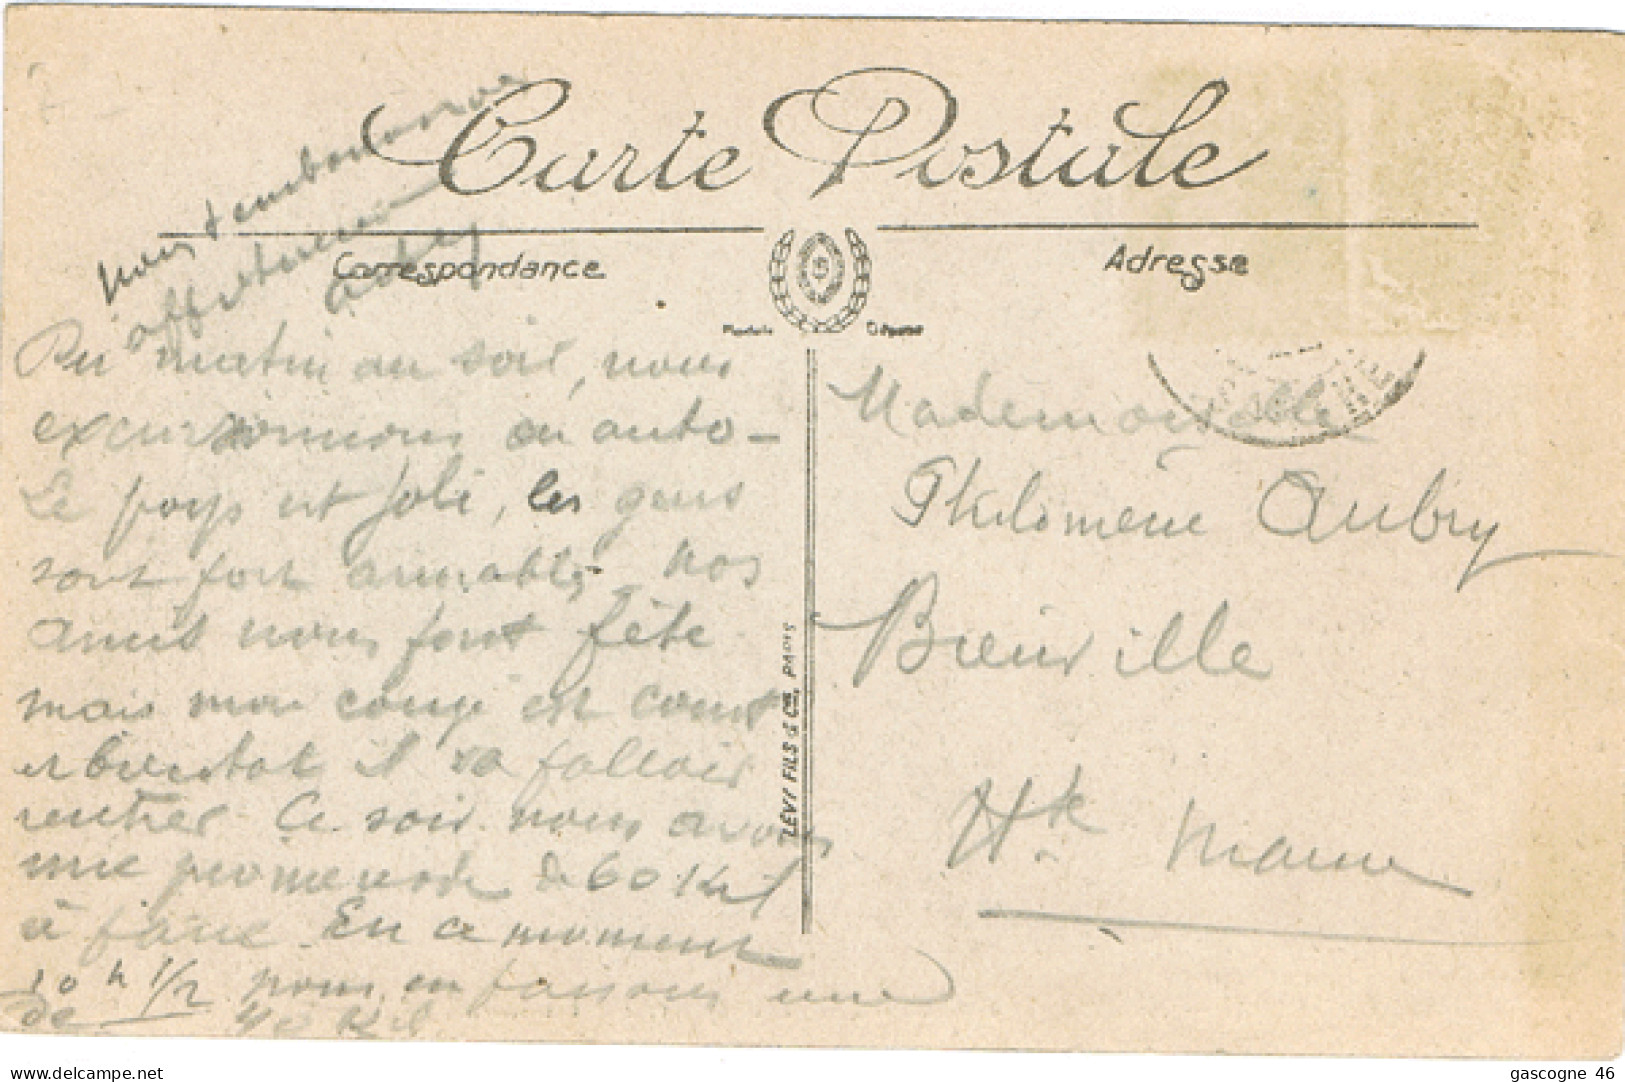 Carte Postale
Correspondance
Adresse
nous t'embrassons
affectueusement
Du matin au soir, nous
excursionnons en auto -
Le pays est joli, les gens
sont fort aimables. Nos
amis nous font fête
mais mon congé est court
et bientôt il va falloir
rentrer Ce soir nous avons
une promenade de 60 Kil
à faire. En ce moment
10 h 1/2 nous en faisons une
de 40 Kil
LÉVY FILS & Cie, PARIS
Mademoiselle
Philomène Aubry
Bienville
Hte Marne
gascogne 46
delcampe.net